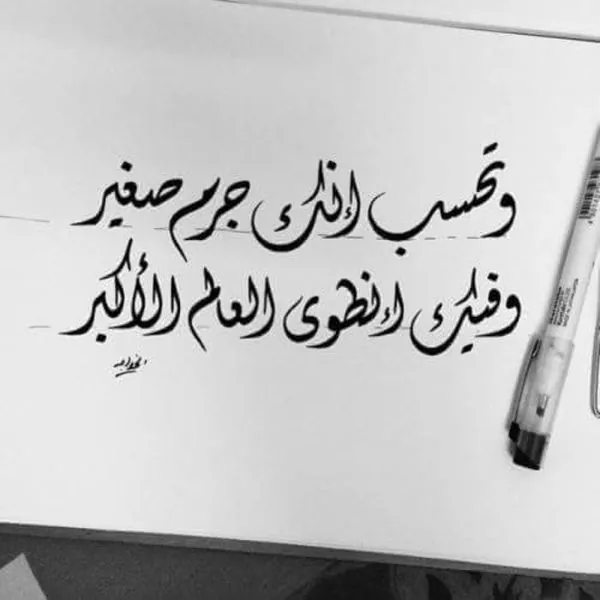 وتحسب إنك جرم صغير
وفيك إنطوى العالم الأكبر